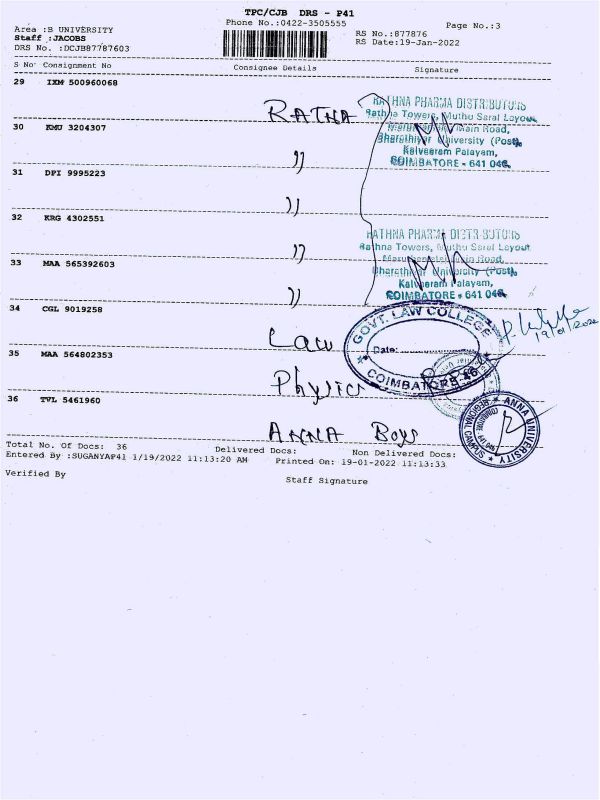 TPC/CJB DRS - P41
Phone No.:0422-3505555
Page No.:3
Area :B UNIVERSITY
Staff :JACOBS
DRS No. :DCJB87787603
RS No.:877876
RS Date:19-Jan-2022
S No Consignment No Consignee Details Signature
29 IXM 500960068
RATNA
RATHNA PHARMA DISTRIBUTORS
Rathna Towers, Muthu Saral Layout,
Main Road,
Bharathiyar University (Post),
Kalveeram Palayam,
COIMBATORE - 641 046.
30 KMU 3204307
"
31 DPI 9995223
"
32 KRG 4302551
"
RATHNA PHARMA DISTRIBUTORS
Rathna Towers, Muthu Saral Layout
Main Road,
Bharathiyar University (Post),
Kalveeram Palayam,
COIMBATORE - 641 046.
33 MAA 565392603
"
34 CGL 9019258
Law
GOVT. LAW COLLEGE
Date:
COIMBATORE-46
35 MAA 564802353
Physics
36 TVL 5461960
ANNA Boys
ANNA UNIVERSITY
Total No. Of Docs: 36 Delivered Docs: Non Delivered Docs:
Entered By :SUGANYAP41 1/19/2022 11:13:20 AM Printed On: 19-01-2022 11:13:33
Verified By
Staff Signature